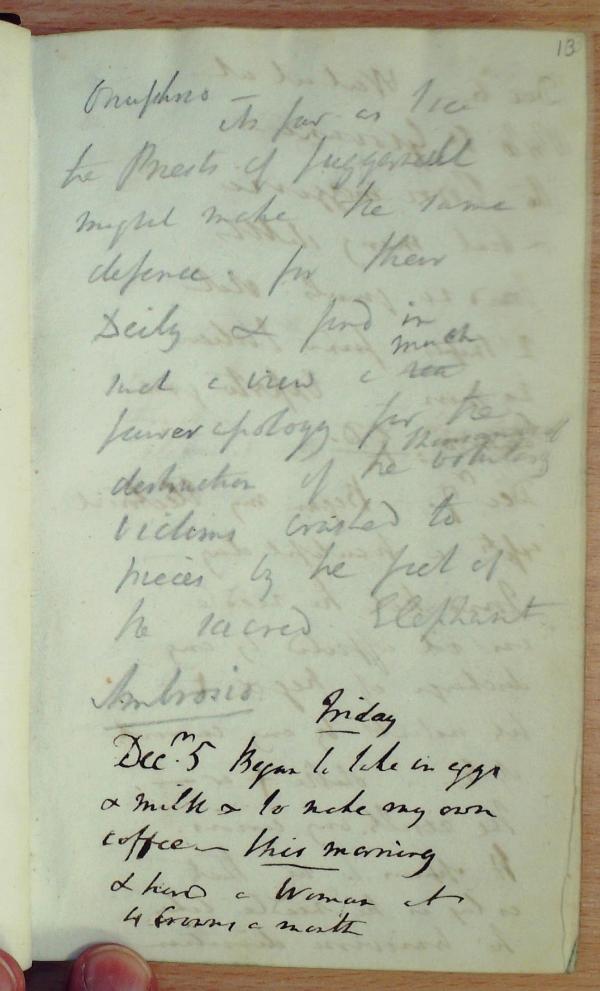 13
Onuphrio As far as I see
the Priests of Juggernaut
might make the same
defence for their
Deity & find in
such a view a much
fairer apology for the
destruction of the thousand voluntary
victims crushed to
pieces by the feet of
the sacred Elephant
Ambrosio
Friday
Decm. 5 Began to take in eggs
& milk & to make my own
coffee – this morning
& hired a Woman at
4 Crowns a month